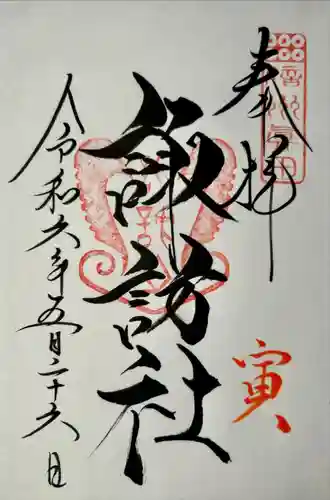 奉拝
諏訪社
寅
令和六年五月二十六日